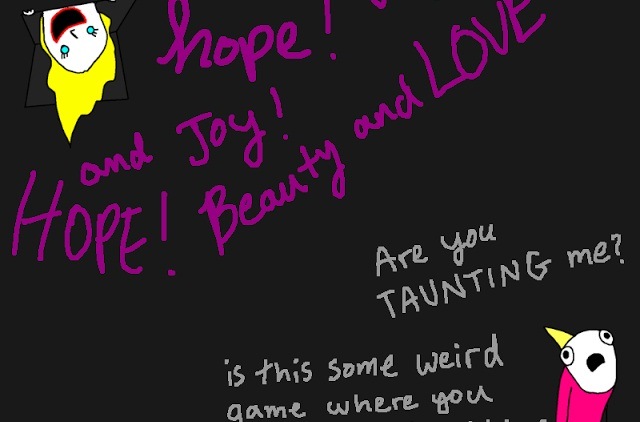 hope!
and Joy!
HOPE! Beauty and LOVE
Are you
TAUNTING me?
is this some weird
game where you